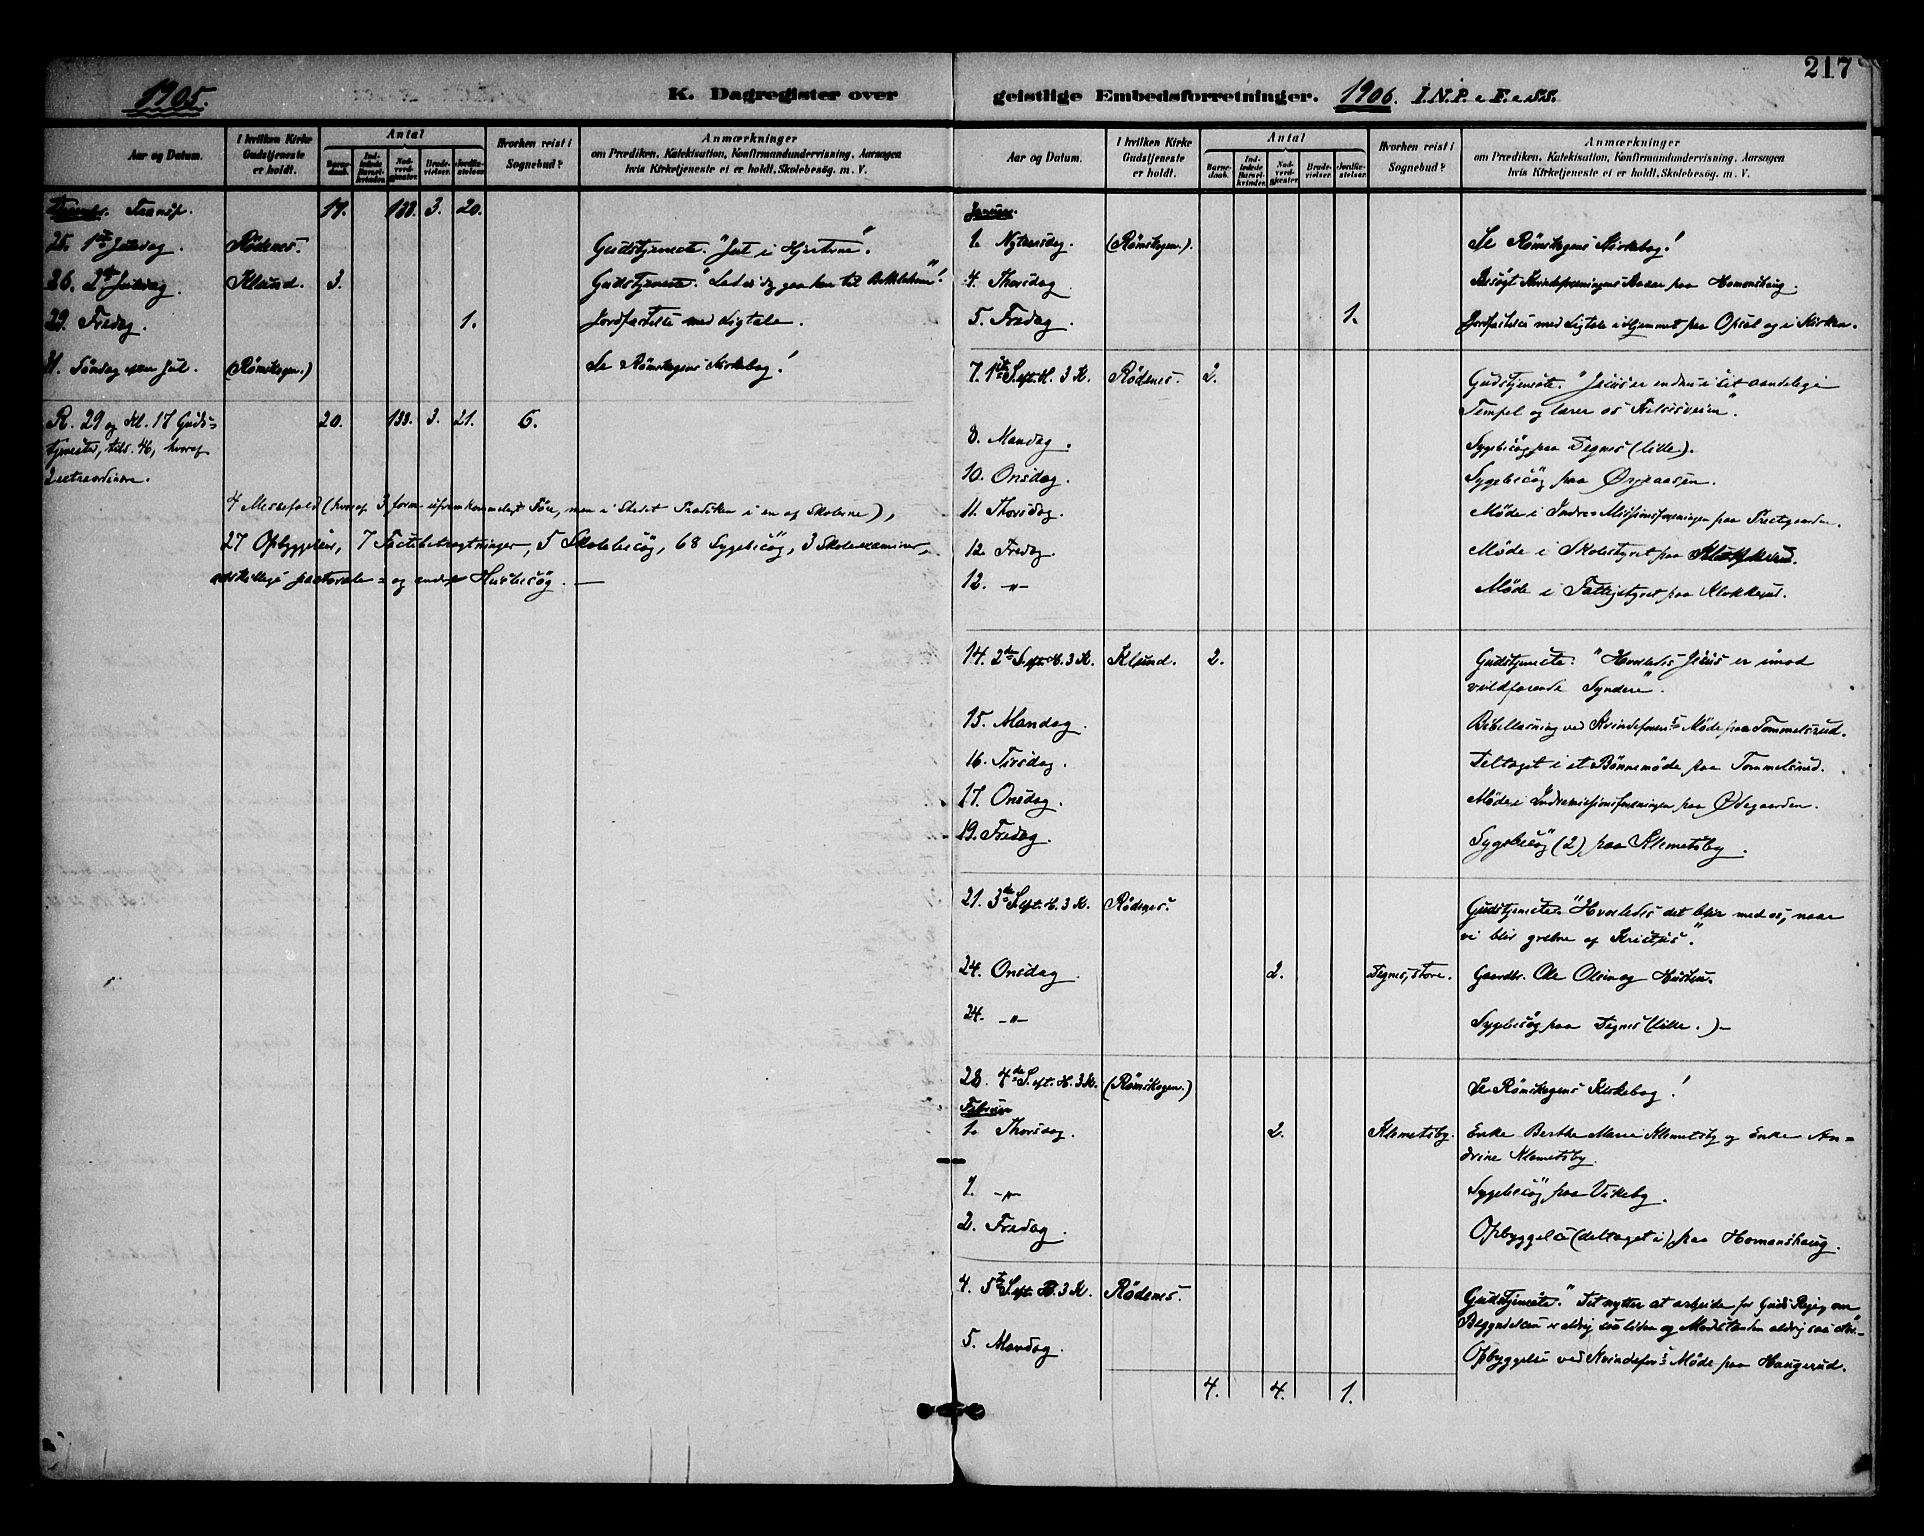 1905.
K. Dagregister over
Aar og Datum.
I hvilken Kirke Gudstjeneste er holdt.
Antal
Barnedaab.
Indledede Barselkvinder.
Nadverdgjester.
Brudevielser.
Jordfæstelser.
Hvorhen reist i Sognebud?
Anmærkninger
om Prædiken, Katekisation, Konfirmandundervisning, Aarsagen
hvis Kirketjeneste ei er holdt, Skolebesøg. m. V.
Transp. 17. 133. 3. 20.
25. 1ste Juledag. Rödenes. Gudstjeneste. "Jul i Hjerterne".
26. 2den Juledag. Klund. 3. Gudstjeneste. "Lad os dog gaa hen til Bethlehem"!
29. Fredag. 1. Jordfæstelse med Ligtale.
31. Söndag efter Jul. (Römskogen.) Se Römskogens Kirkebog!
R. 29 og Kl. 17 Guds- 20. 133. 3. 21. 6.
tjenester, tils. 46, hvoraf
2 extraordinære.
4 Messefald (hvoraf 3 form. ufremkommeligt Före, men i Stedet Prædiken i en af Skolerne),
27 Opbyggelser, 7 Fastebetragtninger, 5 Skolebesög, 68 Sygebesög, 3 Skoleexaminer,
adskillige pastorale og andre Husbesög. —
217
geistlige Embedsforretninger. 1906. I.N.P. e F. e S.S.
Aar og Datum.
I hvilken Kirke Gudstjeneste er holdt.
Antal
Barnedaab.
Indledede Barselkvinder.
Nadverdgjester.
Brudevielser.
Jordfæstelser.
Hvorhen reist i Sognebud?
Anmærkninger
om Prædiken, Katekisation, Konfirmandundervisning, Aarsagen
hvis Kirketjeneste ei er holdt, Skolebesøg. m. V.
Januar.
1. Nytaarsdag. (Römskogen.). Se Römskogens Kirkebog!
4. Thorsdag. Besögt Kvindeforeningens Basar paa Homanshaug.
5. Fredag. 1. Jordfæstelse med Ligtale i Hjemmet paa Opsal og i Kirken.
7. 1ste S. eft. H. 3 K. Rödenes. 2. Gudstjeneste. "Jesus er endnu i sit aandelige
Tempel og lærer os Frelsesveien".
8. Mandag. Sygebesög paa Tegnes (lille).
10. Onsdag. Sygebesög paa Ørjeaasen.
11. Thorsdag. Möde i Indre-Missionsforeningen paa Præstgaarden.
12. Fredag. Möde i Skolestyret paa Klokkerud.
12. -"- Möde i Fattigstyret paa Klokkerud.
14. 2den S. eft. H. 3 K. Klund. 2. Gudstjeneste. "Hvorledes Jesus er imod
vildfarende Syndere".
15. Mandag. Bibellæsning ved Kvindeforens Möde paa Tommelsrud.
16. Tirsdag. Deltaget i et Bönnemöde paa Tommelsrud.
17. Onsdag. Möde i Indremissionsforeningen paa Ødegaarden.
19. Fredag. Sygebesög (2) paa Klemetsby.
21. 3de S. eft. H. 3 K. Rödenes. Gudstjeneste. "Hvorledes det blir med os, naar
vi blir grebne af Kristus."
24. Onsdag. 2. Tegnes, store. Gaardbr. Ole Olsen og Hustru.
24. -"- Sygebesög paa Tegnes (lille.)-
28. 4de S. eft. H. 3 K. (Römskogen.) Se Römskogens Kirkebog!
Februar
1. Thorsdag. 2. Klemetsby. Enke Berthe Marie Klemetsby og Enke An-
drine Klemetsby.
1. -"- Sygebesög paa Vikeby.
2. Fredag. Opbyggelse (deltaget i) paa Homanshaug.
4. 5te S. eft. H. 3 K. Rödenes. Gudstjeneste. "Det nytter at arbeide for Guds Rige, om
Begyndelsen er aldrig saa liden og Modstanden aldrig saa
5. Mandag. Opbyggelse ved Kvindefors Möde paa Haugerud.
4. 4. 1.